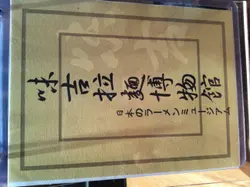 味吉拉麵博物館
日本のラーメンミュージアム